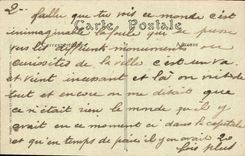 2 - fallu que tu vis ce monde c'est
Carte Postale
inimaginable la foule qui se
vers les différents monuments ou
curiosités de la ville c'est un va
et vient incessant et là on voit de
tout et encore on me disait que
ce n'était rien le monde qu'il y
avait en ce moment ci dans la capitale
et qu'en temps de paix il y en avait 20
fois plus